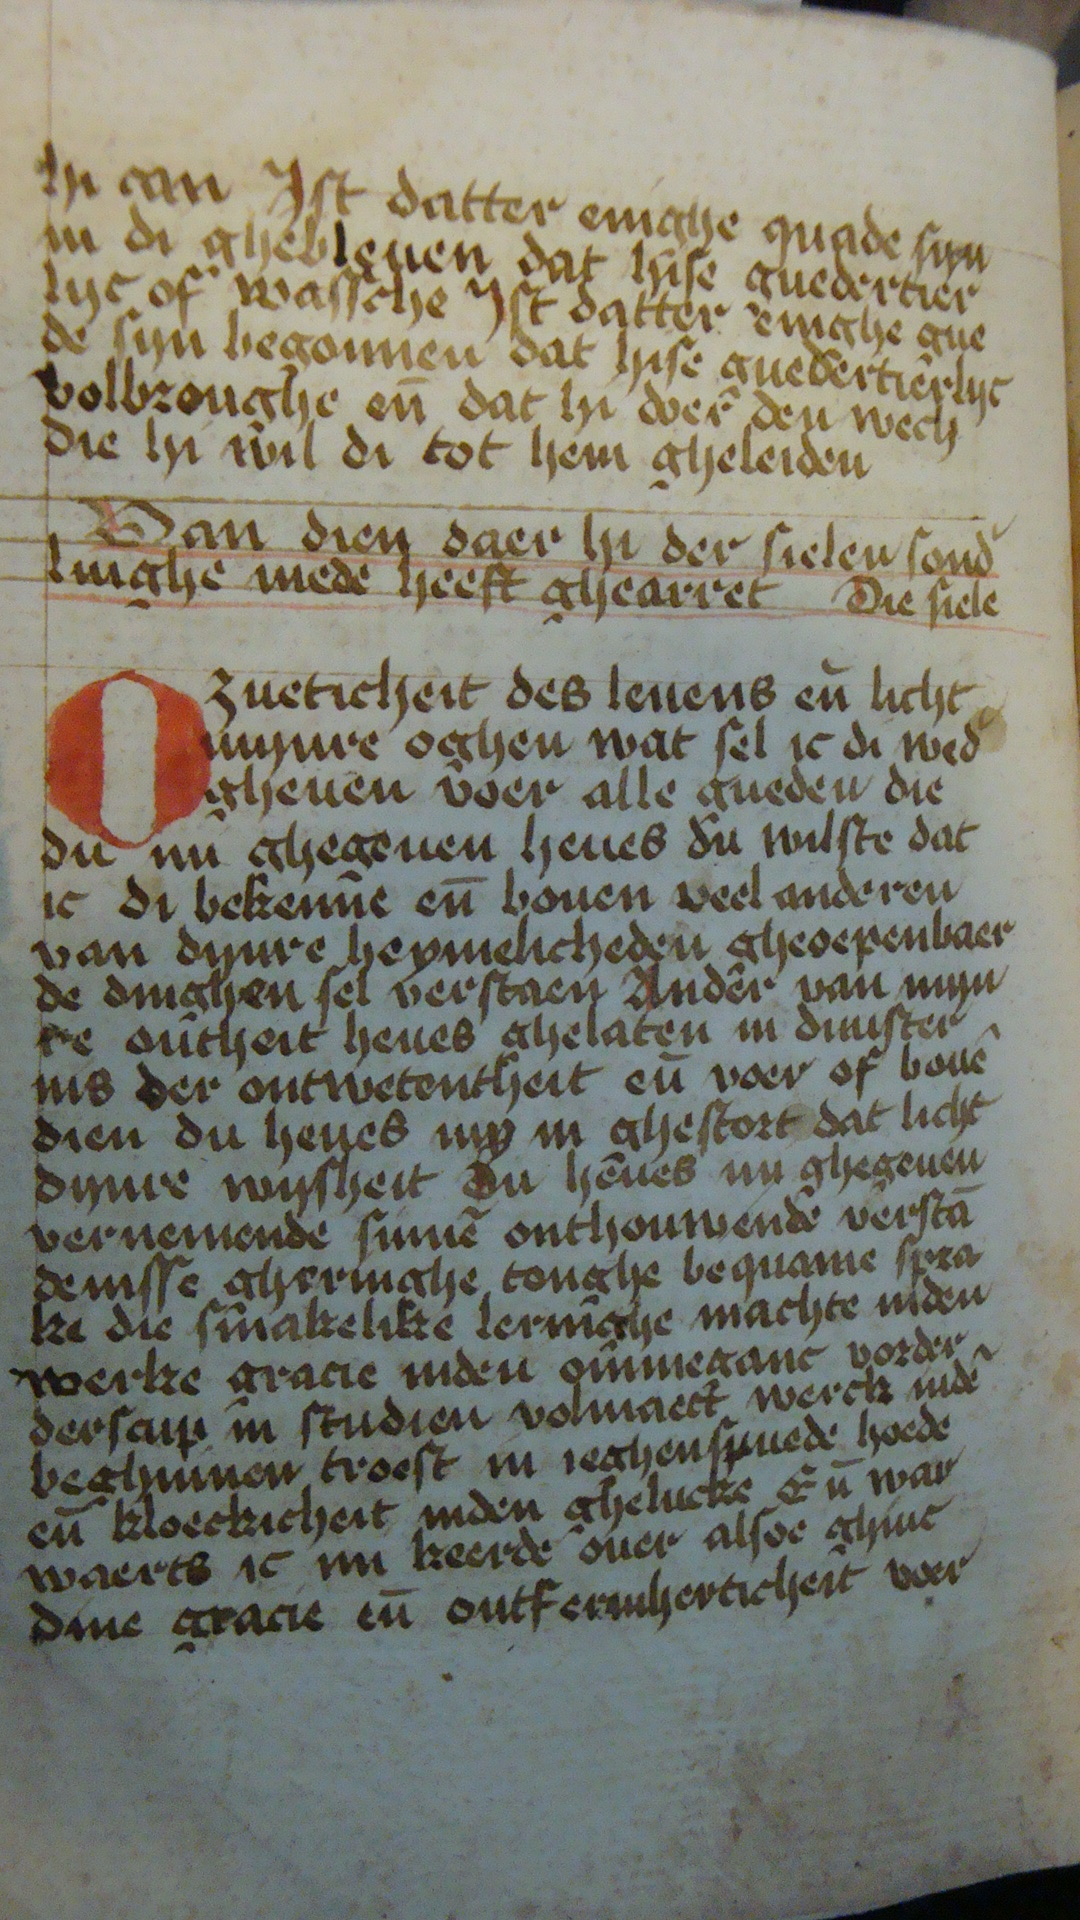 hi can Ist datter enighe quade syn
in di ghebleuen dat hise guedertier
lijc of wassche Ist datter enighe gue
de syn begonnen dat hise guedertierlijc
volbroughe eñ dat hi ouer den wech
die hi wil di tot hem gheleiden
Van dien daer hi der sielen sond̃
linghe mede heeft ghearret Die siele
O zueticheit des leuens eñ licht
mijnre oghen wat sel ic di wed̃
gheuen voer alle gueden die
du mi ghegeuen heues du wilste dat
ic di bekenne eñ bouen veel anderen
van dijnre heymelicheden gheoepenbaer
de dinghen sel verstaen Ander van mijn
re outheit heues ghelaten in duuster
nis der ontwetentheit eñ voer of bouẽ
dien du heues my in ghestort dat licht
dijnre wijsheit Du heues mi ghegeuen
vernemende sinnẽ onthouwende verstã
denisse gheringhe tonghe bequame spra
ke die smakelike leringhe machte inden
werke gracie inden ommeganc vorder
derscap in studien volmaect werck indẽ
beghinnen troest in ieghenspuede hoede
eñ kloeckicheit inden ghelucke Eñ war
waerts ic mi keerde ouer alsoe ghinc
dine gracie eñ ontfermherticheit voer